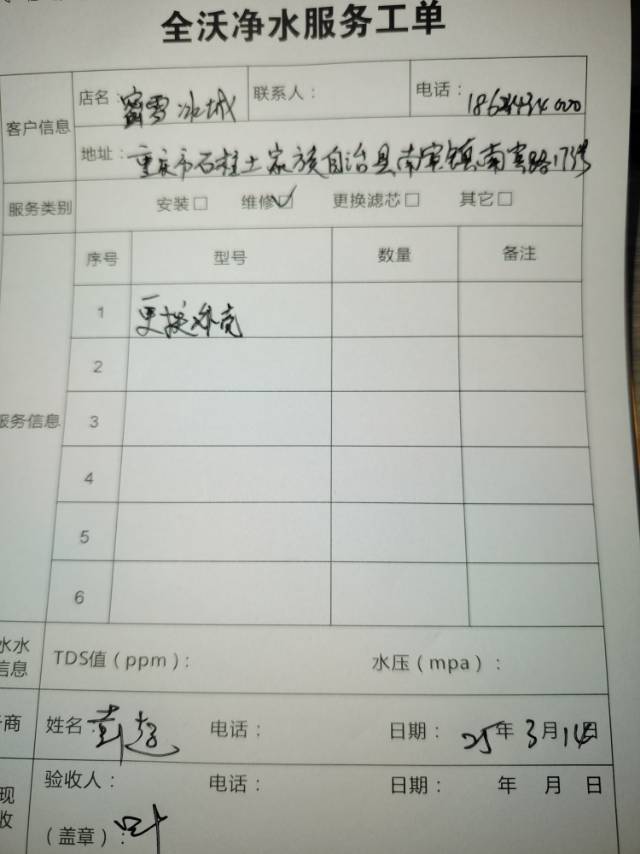 全沃净水服务工单
客户信息
店名 蜜雪冰城 联系人：
电话：
地址：重庆市石柱土家族自治县南宾镇南宾路173号
服务类别 安装□ 维修☑ 更换滤芯□ 其它□
服务信息
序号 型号 数量 备注
1 更换外壳
2
3
4
5
6
水水
信息
TDS值（ppm）： 水压（mpa）：
商
姓名： 电话： 日期：25年3月14日
现
收
验收人： 电话： 日期： 年 月 日
（盖章）：叶